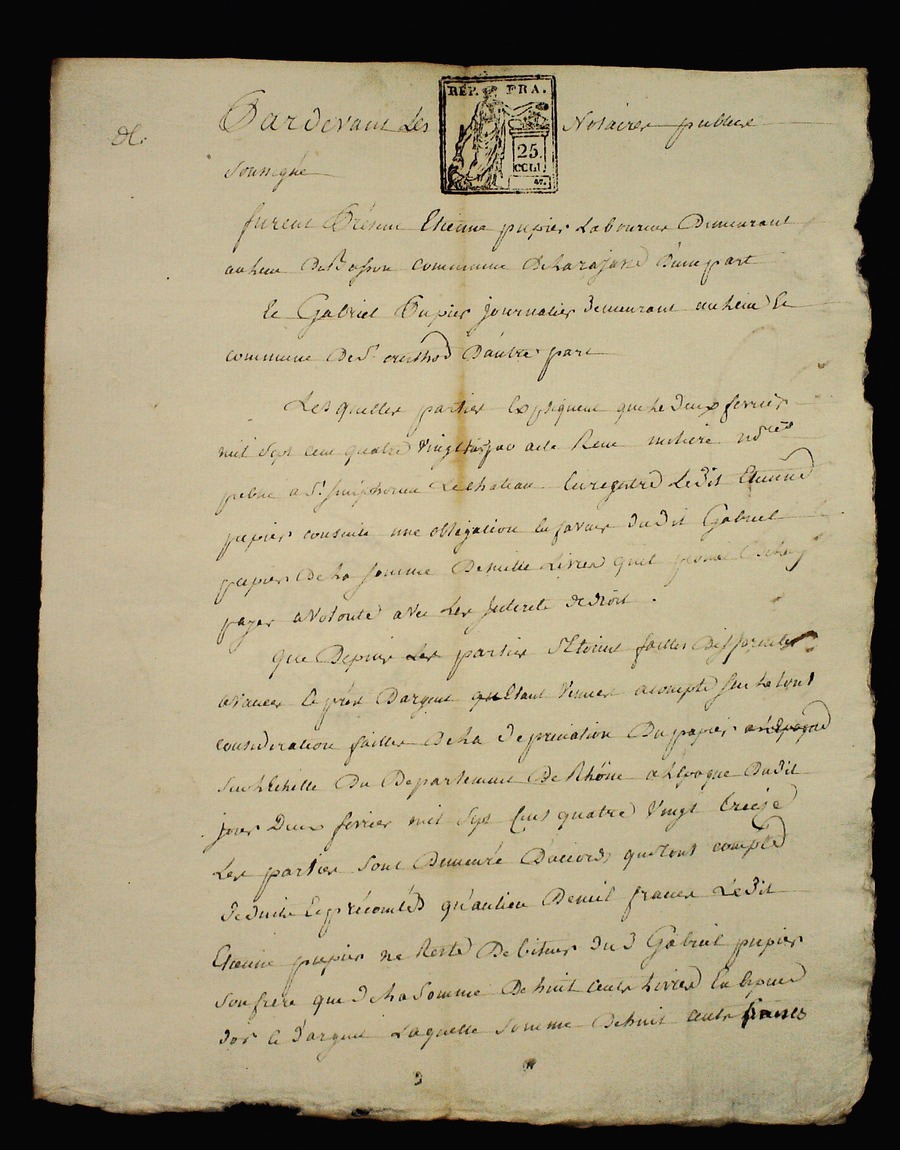 REP. FRA.
25.
CCL.
Pardevant Les Notaires publics
Soussigné
furent Présent Etienne pupier Laboureur Demeurant
aulieu De Bosson commune De Larajasse D'une part
Et Gabriel Pupier Journalier Demeurant aulieu Et
commune De St. D'autre part
Les quelles parties Expliquent que Le Deux fevrier
mil Sept cent quatre Vingt par acte Reçu notaire
public a St. Simphorien Le chateau Enregistré Le Dit Etienne
pupier consentit une obligation En faveur Dudit Gabriel
pupier De La Somme De mille Livres quil promit
payer a Volonté avec Les Interets de droit .
que Depuis Les parties S'Etoient faittes Differentes
avances Et prêt D'argent Etant Venues acompte Sur Le tout
consideration faitte De La Depreciation Du papier a L'Epoque
Sur L'Echelle Du Departement De Rhône a L'Epoque Dudit
jour Deux fevrier mil Sept Cent quatre Vingt treize
Les parties Sont Demeuré D'accord, que tout compté
Deduits Et précomtés qu'aulieu De mil francs Le Dit
Etienne pupier ne Reste Debiteur Dud Gabriel pupier
Son frere que De La Somme De huit cents Livres En Especes
D'or Et D'argent Laquelle Somme De huit cents francs